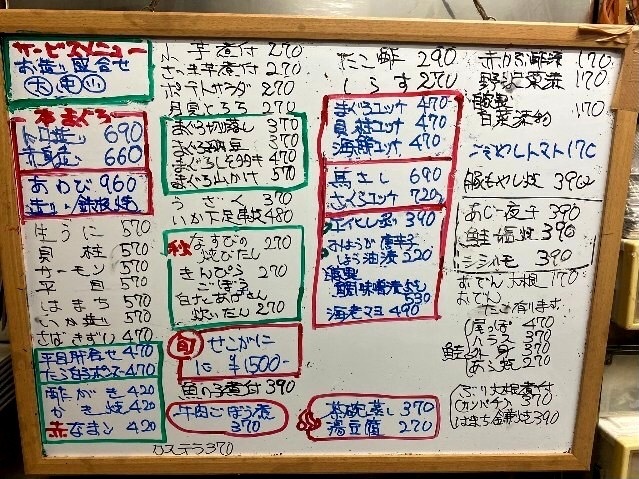 サービスメニュー
お造り盛合せ
大 中 小
本まぐろ
トロ造り 690
赤身造り 660
あわび 960
造り/鉄板焼
生うに 570
貝柱 570
サーモン 570
平目 570
はまち 570
いか造り 570
さばきずし 470
平目肝合せ 470
たら白子ポン酢 470
酢がき 420
かき焼 420
赤なまこ 420
小芋煮付 270
さつま芋煮付 270
ポテトサラダ 270
月見とろろ 270
まぐろ切落し 370
まぐろ納豆 370
まぐろしそたたき 470
まぐろ山かけ 570
うざく 370
いか下足串焼 480
秋 なすびの焼びたし 270
きんぴらごぼう 270
白なとあげさん炊いたん 270
旬 せこがに
1匹 ¥1500-
魚の子煮付 390
牛肉ごぼう煮
370
カステラ370
たこ酢 290
しらす 270
まぐろユッケ 470
貝柱ユッケ 470
海鮮ユッケ 470
馬さし 690
さくらユッケ 720
エイひれ 390
おはうが唐辛子
しょう油漬 520
鯛味噌漬
530
海老マヨ 490
茶碗蒸し 370
湯豆腐 270
赤かぶ酢漬 170
野沢菜漬 170
白菜漬物 170
ごまわしトマト 170
豚もやし焼 390
あじ一夜干 390
鮭塩焼 390
シシャモ 390
おでん大根 170
おでん
たき有ります
鮭
尾っぽ 470
ハラス 370
外身 370
あら焼 270
ぶり大根煮付
(カンパチ) 370
はまち釜焼 390